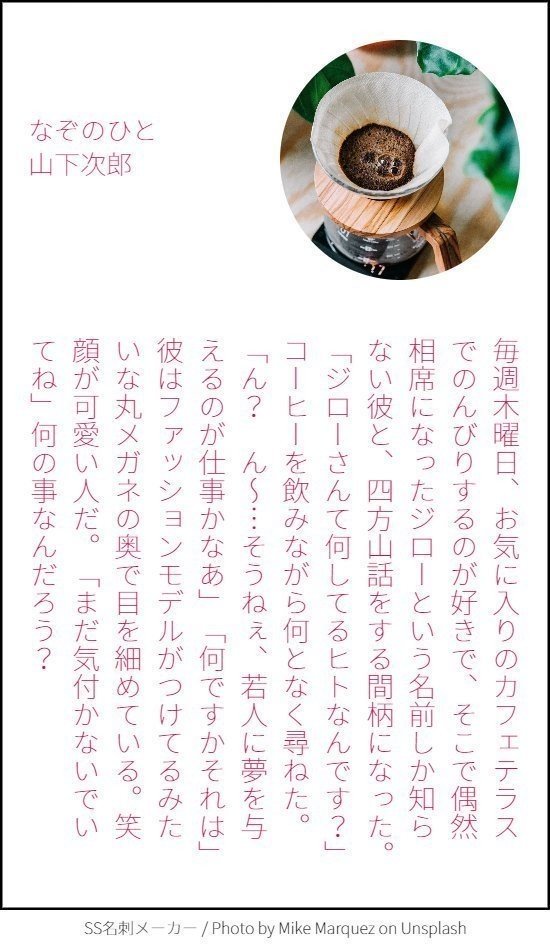 なぞのひと
山下次郎
毎週木曜日、お気に入りのカフェテラス
でのんびりするのが好きで、そこで偶然
相席になったジローという名前しか知ら
ない彼と、四方山話をする間柄になった。
「ジローさんて何してるヒトなんです？」
コーヒーを飲みながら何となく尋ねた。
「ん？　ん～…そうねぇ、若人に夢を与
えるのが仕事かなあ」「何ですかそれは」
彼はファッションモデルがつけてるみた
いな丸メガネの奥で目を細めている。笑
顔が可愛い人だ。「まだ気付かないでい
てね」何の事なんだろう？
SS名刺メーカー / Photo by Mike Marquez on Unsplash